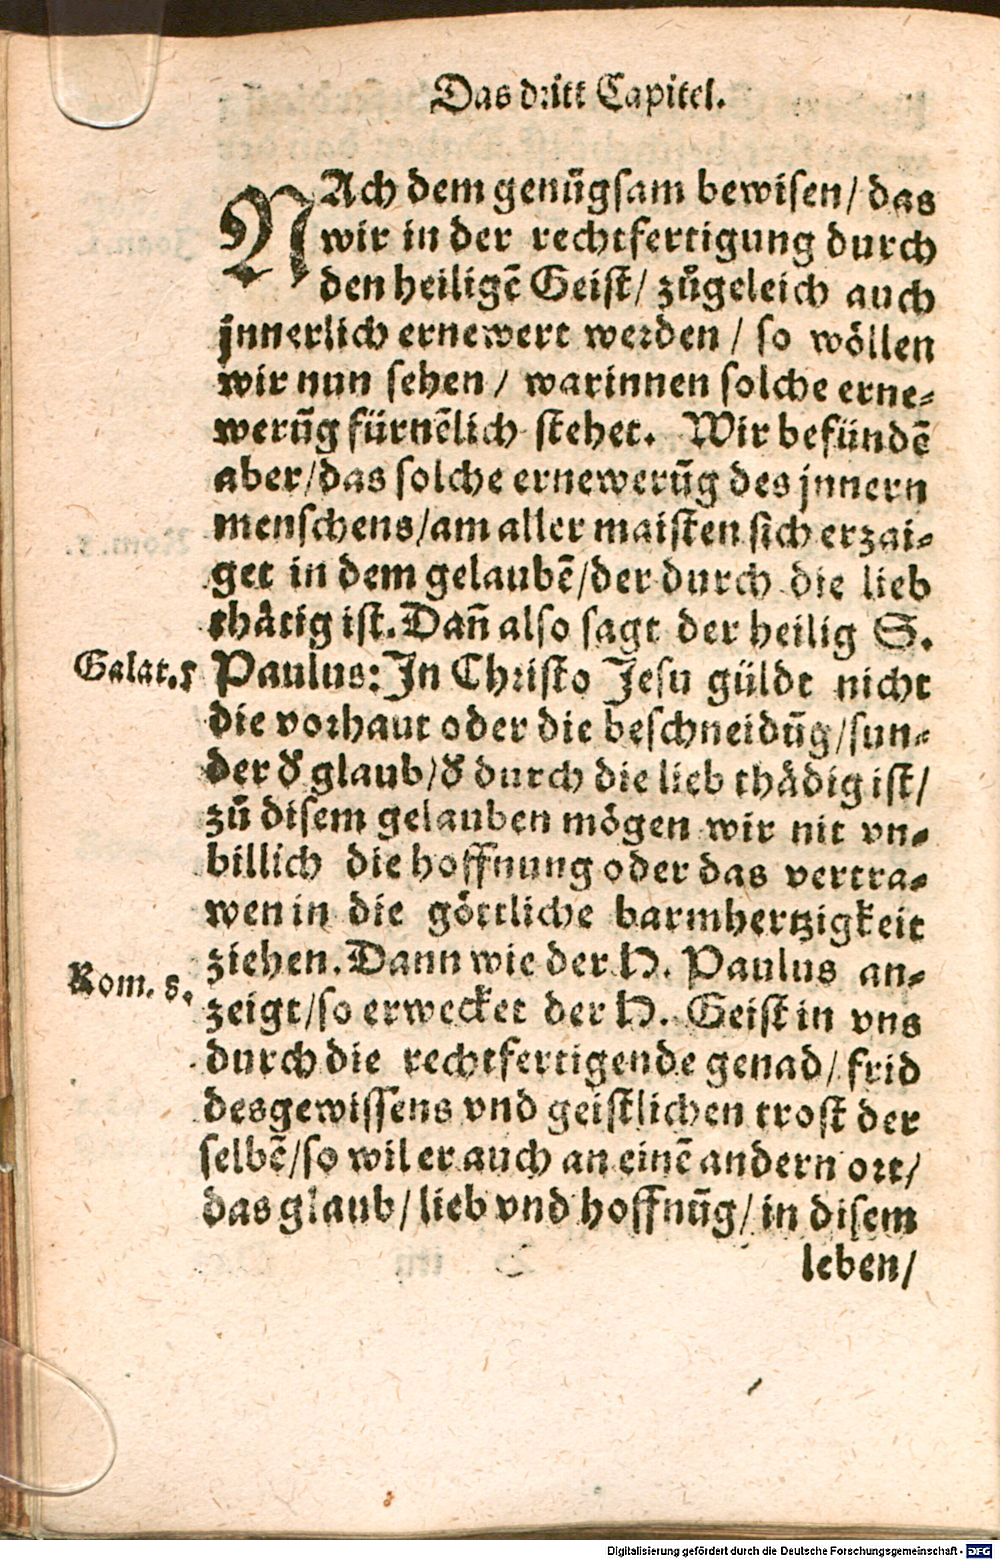 Das dritt Capitel.
NAch dem genũgsam bewisen/ das
wir in der rechtfertigung durch
den heiligẽ Geist/ zůgeleich auch
jnnerlich ernewert werden / so wöllen
wir nun sehen / warinnen solche erne-
werũg fürnẽlich stehet. Wir befündẽ
aber/das solche ernewerũg des jnnern
menschens/am aller maisten sich erzai-
get in dem gelaubẽ/der durch die lieb
thåtig ist. Dañ also sagt der heilig S.
Galat.5 Paulus: In Christo Jesu güldt nicht
die vorhaut oder die beschneidũg/sun-
der ð glaub/ð durch die lieb thådig ist/
zů disem gelauben mögen wir nit vn-
billich die hoffnung oder das vertra-
wen in die göttliche barmhertzigkeit
ziehen. Dann wie der H. Paulus an-
Rom. 8. zeigt/so erwecket der H. Geist in vns
durch die rechtfertigende genad/ frid
des gewissens vnd geistlichen trost der
selbẽ/so wil er auch an einẽ andern ort/
das glaub/ lieb vnd hoffnũg/ in disem
leben/
Digitalisierung gefördert durch die Deutsche Forschungsgemeinschaft - DFG